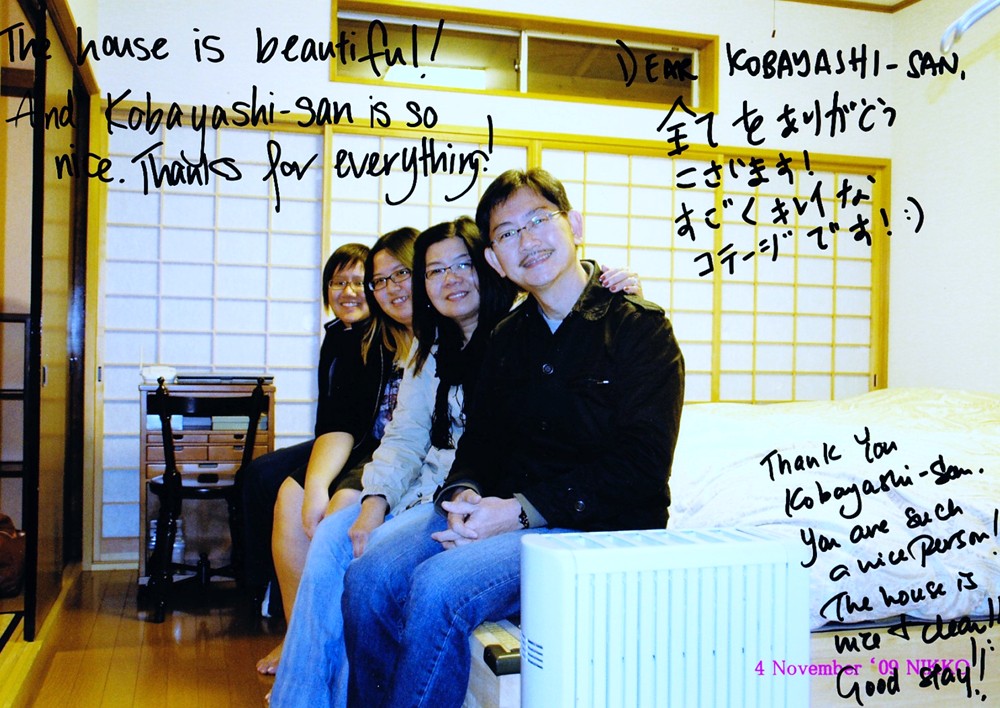 The house is beautiful!
And Kobayashi-san is so
nice. Thanks for everything!
DEAR KOBAYASHI-SAN,
全てをありがとう
ございます!
すごくキレイな
コテージです! :)
Thank You
Kobayashi-San.
You are such
a nice person!
The house is
nice & clean!!
Good stay!!
4 November '09 NIKKO